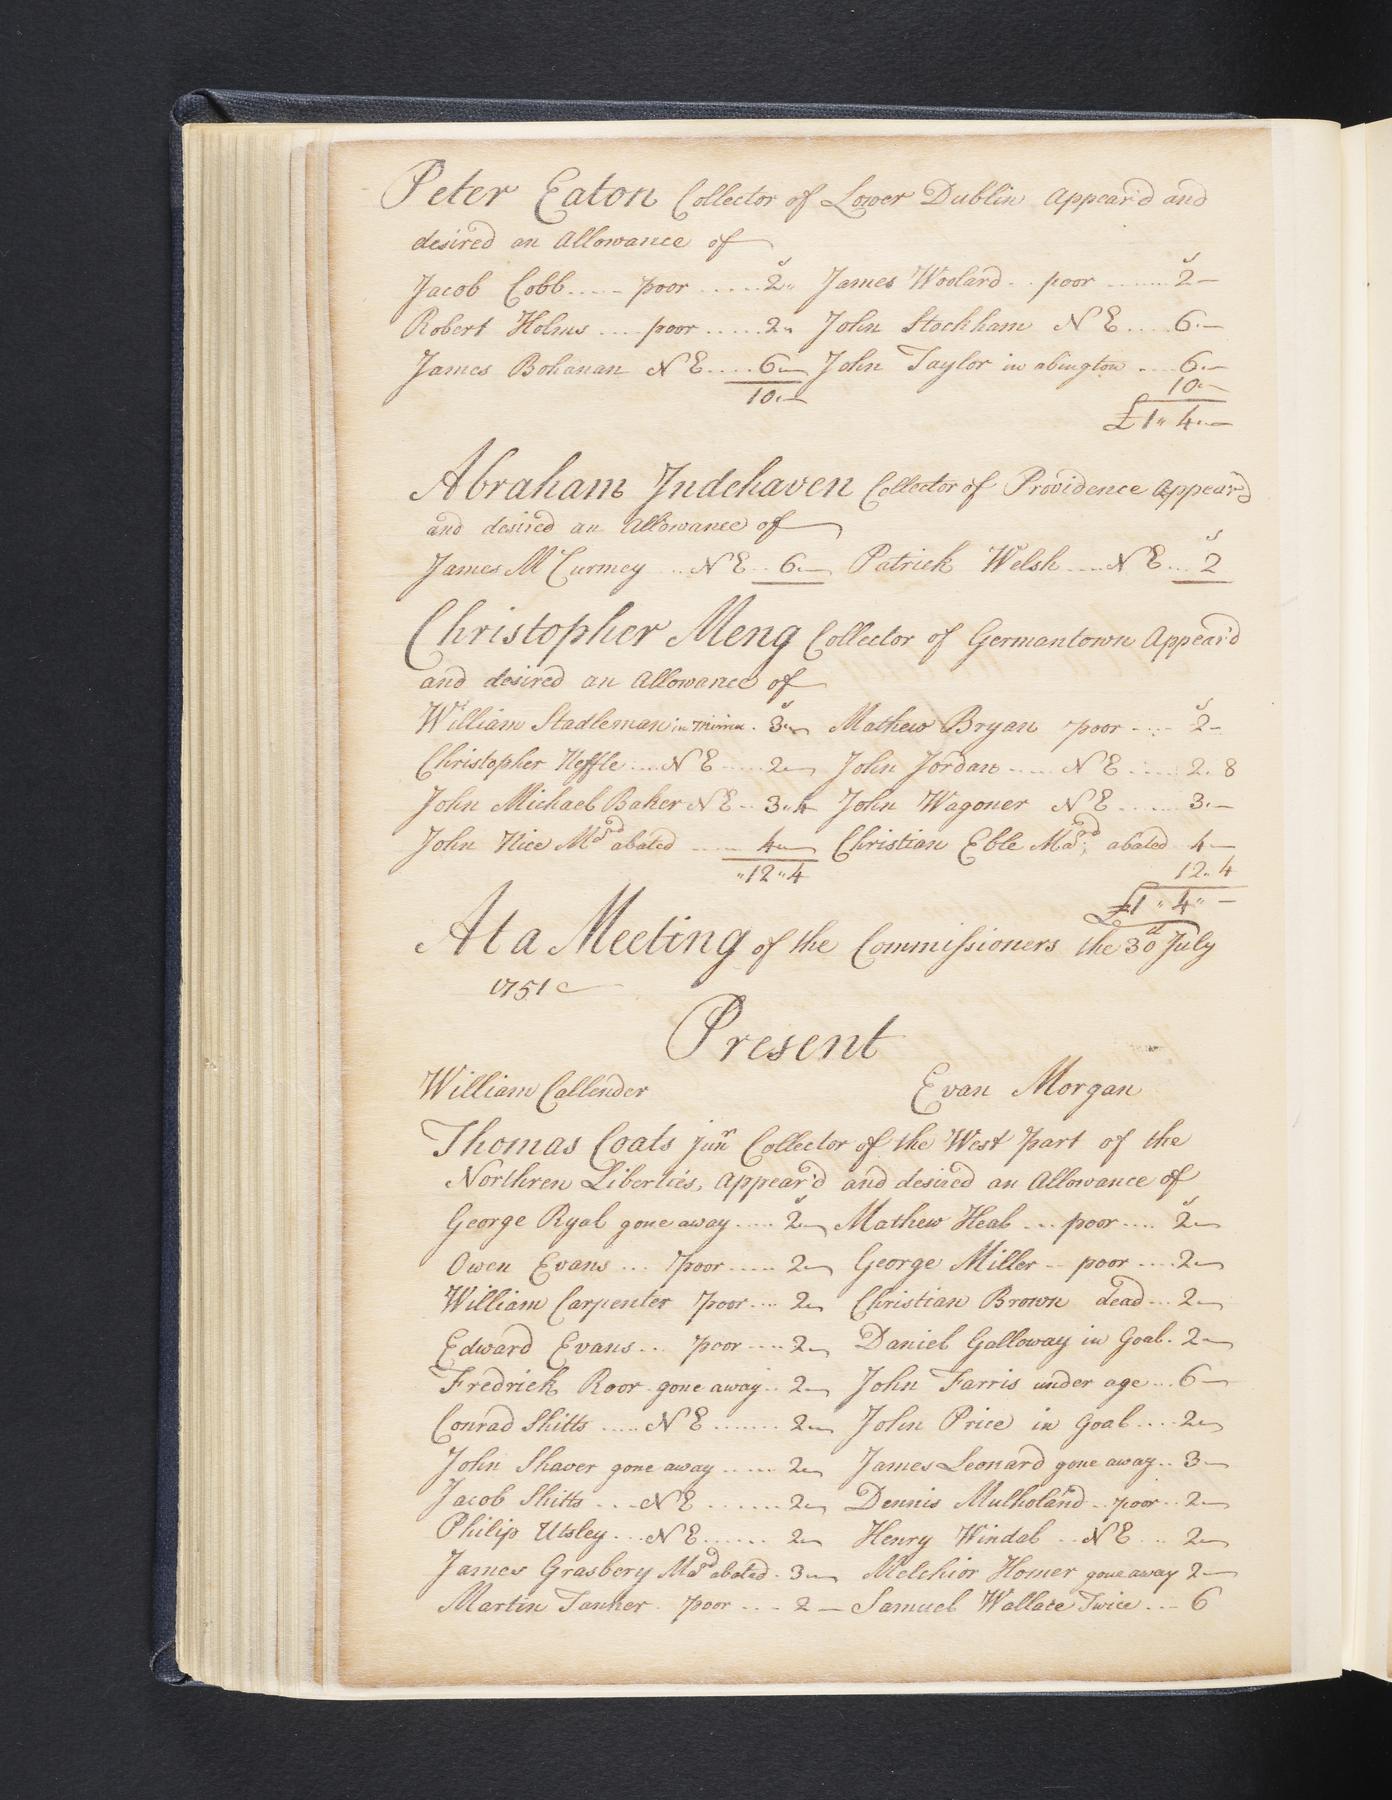 Peter Eaton Collector of Lower Dublin Appear'd and
desired an Allowance of
Jacob Cobb ..... poor ..... 2„ James Woolard .. poor ...... 2 —
Robert Holms .... poor ..... 2„ John Stockham N E .... 6„—
James Bohanan N E .... 6„— John Taylor in abington .... 6„—
10„— 10„—
£1„ 4„—
Abraham Indehaven Collector of Providence Appear'd
and desired an Allowance of
James McCurmey .. N E .. 6„— Patrick Welsh .... N E ... 2
Christopher Meng Collector of Germantown Appear'd
and desired an Allowance of
Wm William Stadleman in . 3„— Mathew Bryan poor ..... 2 —
Christopher Heffle .... N E .... 2„— John Jordan ..... N E ..... 2. 8
John Michael Baker N E .. 3„4 John Wagoner N E ...... 3„—
John Nice Msd abated ..... 4„— Christian Eble Masd abated 4 —
„12„4 12„4
£1„ 4„ —
At a Meeting of the Commissioners the 30th July
1751
Present
William Callender Evan Morgan
Thomas Coats junr Collector of the West part of the
Northren Liberties, Appear'd and desired an Allowance of
George Ryal gone away ..... 2„— Mathew Heal ... poor .... 2„—
Owen Evans ... poor ..... 2„— George Miller .. poor .... 2„—
William Carpenter poor .... 2„— Christian Brown dead ... 2„—
Edward Evans ... poor .... 2„— Daniel Galloway in Goal . 2 —
Fredrick Roor gone away .. 2„— John Farris under age ... 6 —
Conrad Shitts ..... N E ....... 2„— John Price in Goal .... 2„—
John Shaver gone away ..... 2„— James Leonard gone away .. 3 —
Jacob Shitts .... N E ....... 2„— Dennis Mulholand .. poor .. 2 —
Philip Utsley ... N E ...... 2„— Henry Windal .. N E .. 2„—
James Grasbery Msd abated . 3„— Melchior Homer gone away 2 —
Martin Tanner . poor ... 2 — Samuel Wallace Twice ... 6